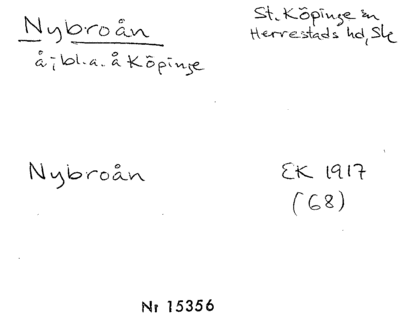 Nybroån
St. Köpinge sn
Herrestads hd, Sk
å; bl.a. å Köpinge
Nybroån
EK 1917
(68)
Nr 15356